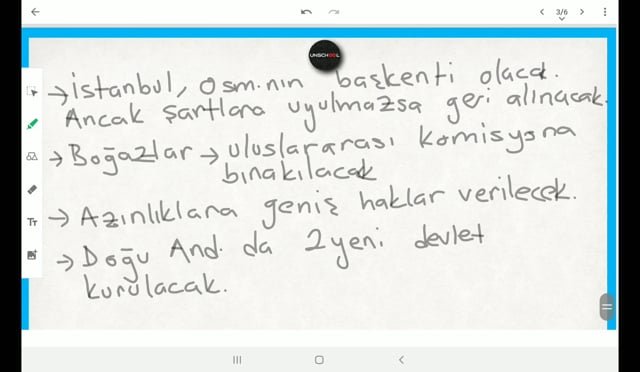 3/6
UNSCHOOL
→ istanbul, Osm.nın başkenti olacak.
Ancak şartlara uyulmazsa geri alınacak.
→ Boğazlar → uluslararası komisyona
bırakılacak
→ Azınlıklara geniş haklar verilecek.
→ Doğu And. da 2 yeni devlet
kurulacak.
Tт